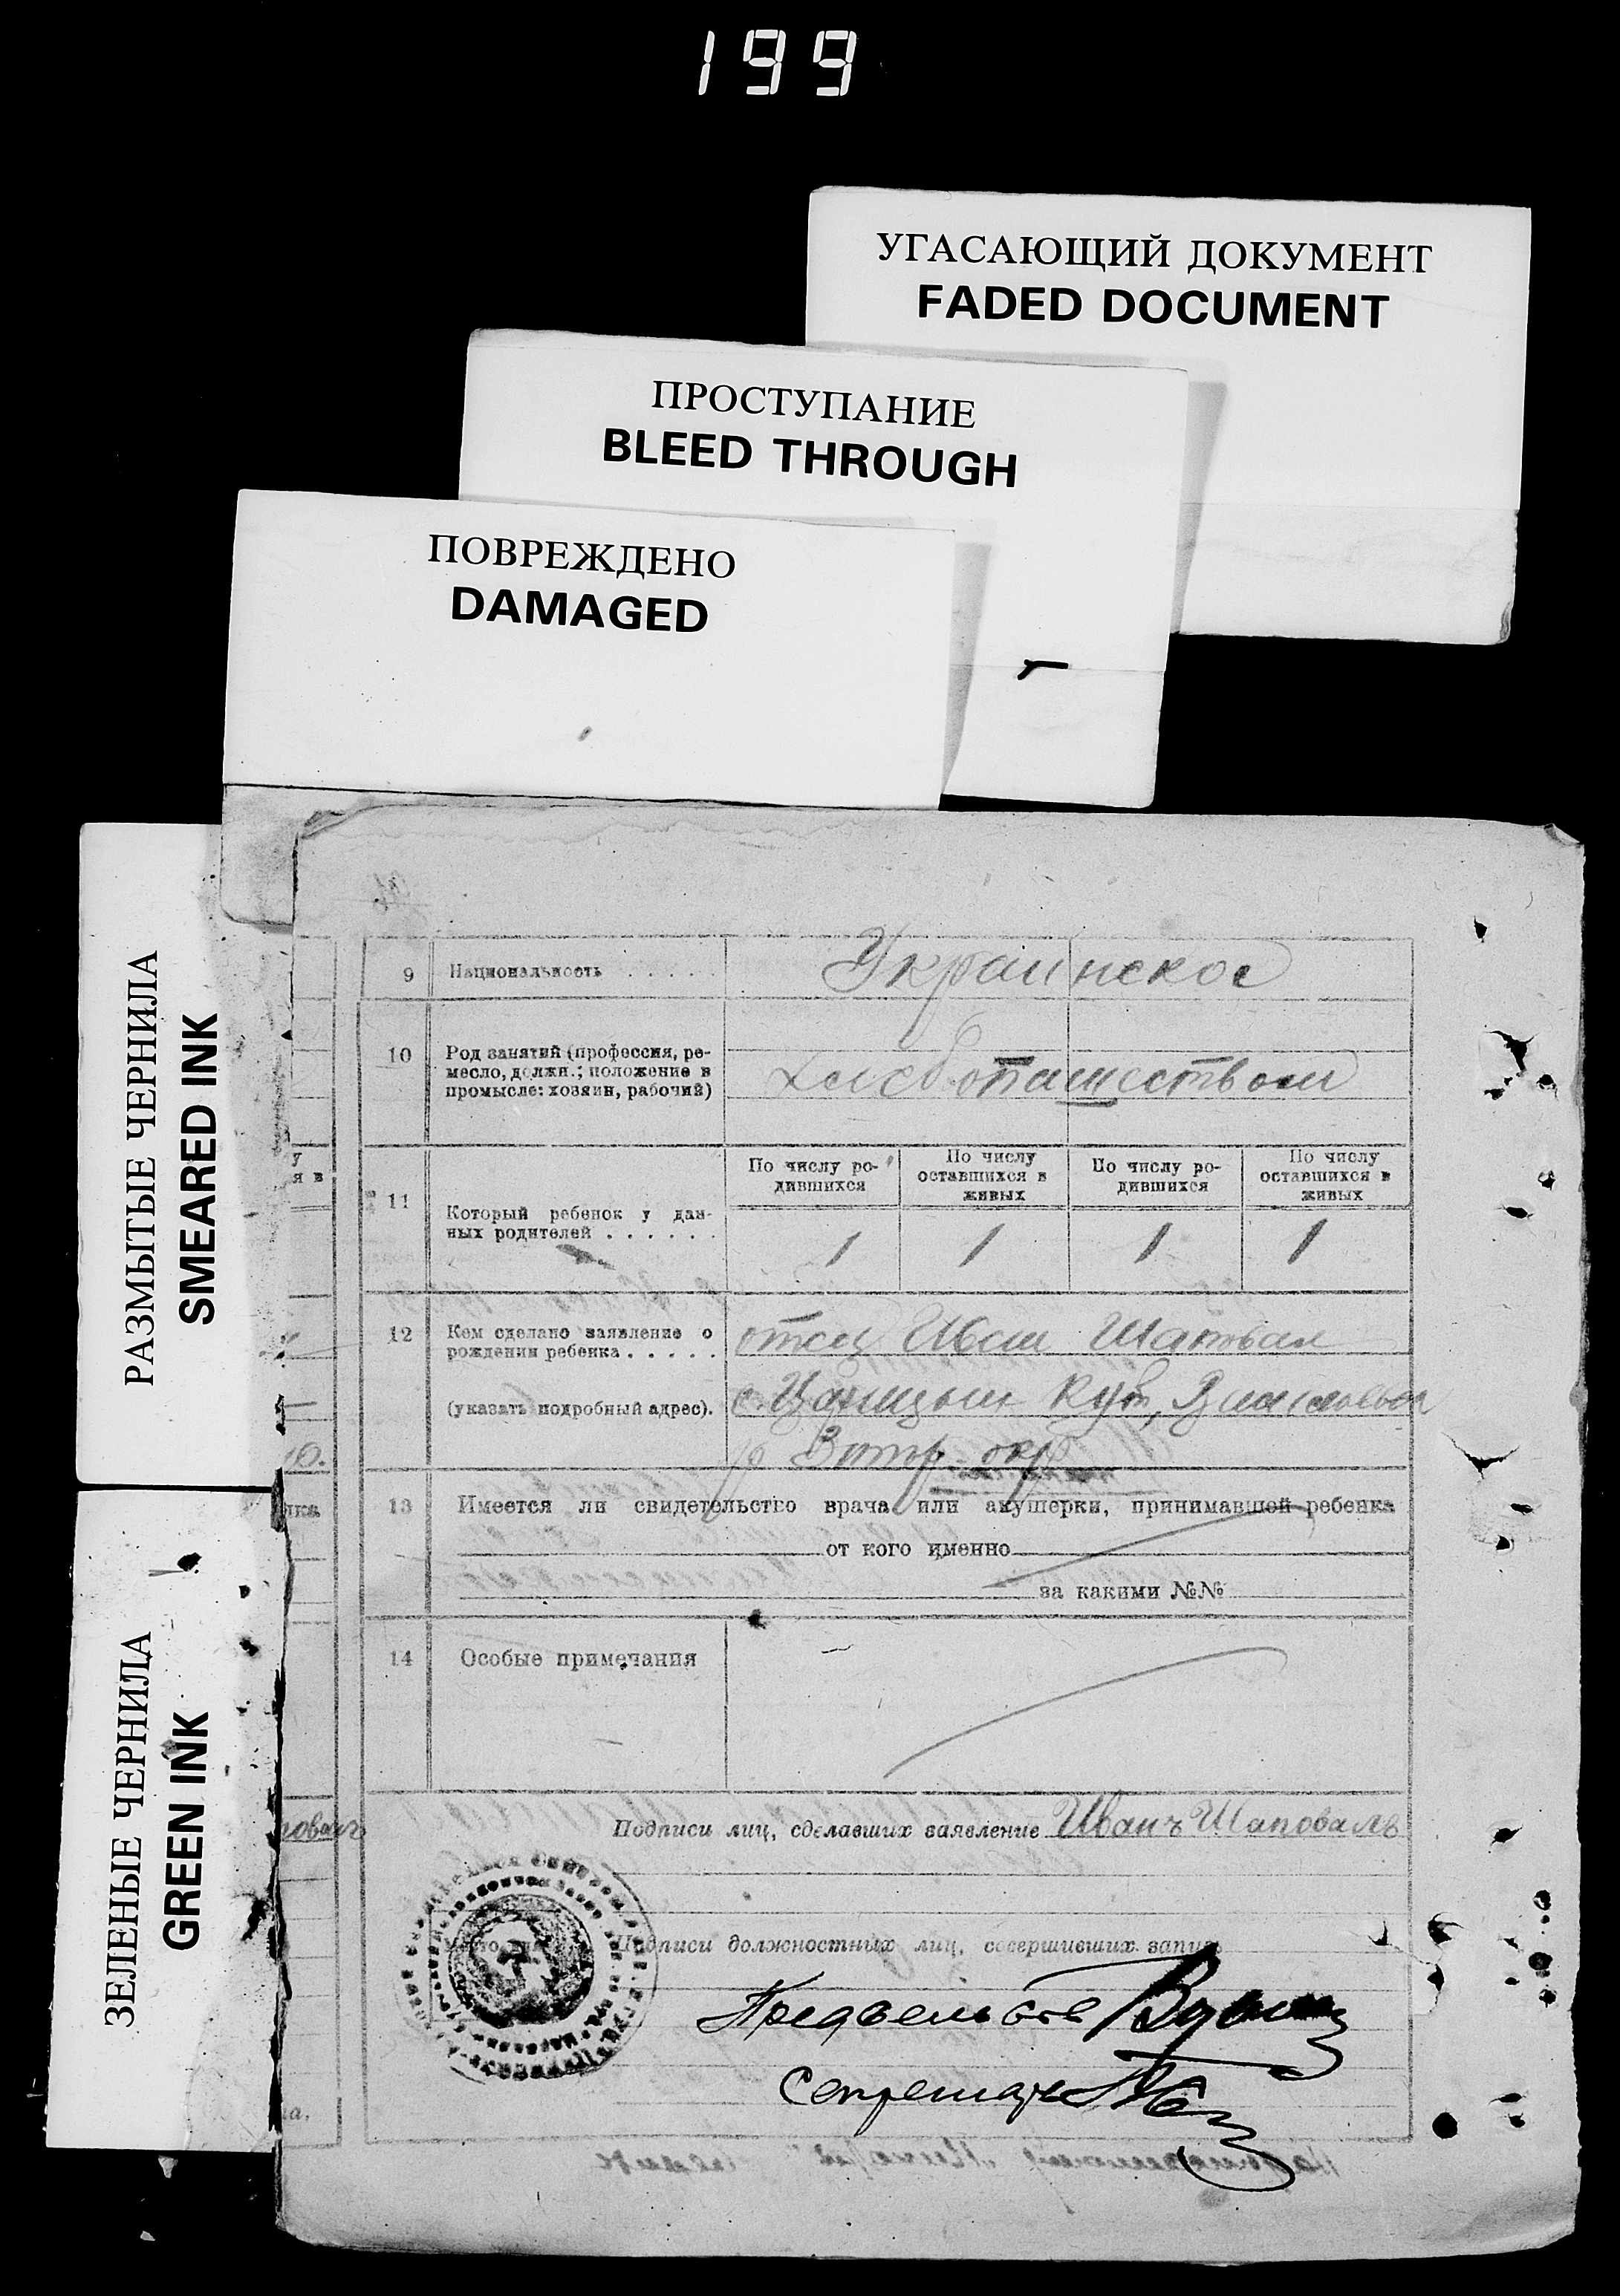 199
УГАСАЮЩИЙ ДОКУМЕНТ
FADED DOCUMENT
ПРОСТУПАНИЕ
BLEED THROUGH
ПОВРЕЖДЕНО
DAMAGED
РАЗМЫТЫЕ ЧЕРНИЛА
SMEARED INK
ЗЕЛЕНЫЕ ЧЕРНИЛА
GREEN INK
9 Национальность . . . . . Украинское
10 Род занятий (профессия, ре-
месло, должн.; положение в
промысле: хозяин, рабочий)
хлебопашеством
11 Который ребенок у дан-
ных родителей . . . . . .
По числу ро-
дившихся
По числу
оставшихся в
живых
По числу ро-
дившихся
По числу
оставшихся в
живых
1 1 1 1
12 Кем сделано заявление о
рождении ребенка . . . . .
(указать подробный адрес).
отец Иван Шаповал
с. Царицын Кут,
р окр
13 Имеется ли свидетельство врача или акушерки, принимавшей ребенка
от кого именно
за какими №№
14 Особые примечания
Подписи лиц, сделавших заявление Иванъ Шаповалъ
Подписи должностных лиц, совершивших запись
Секретарь